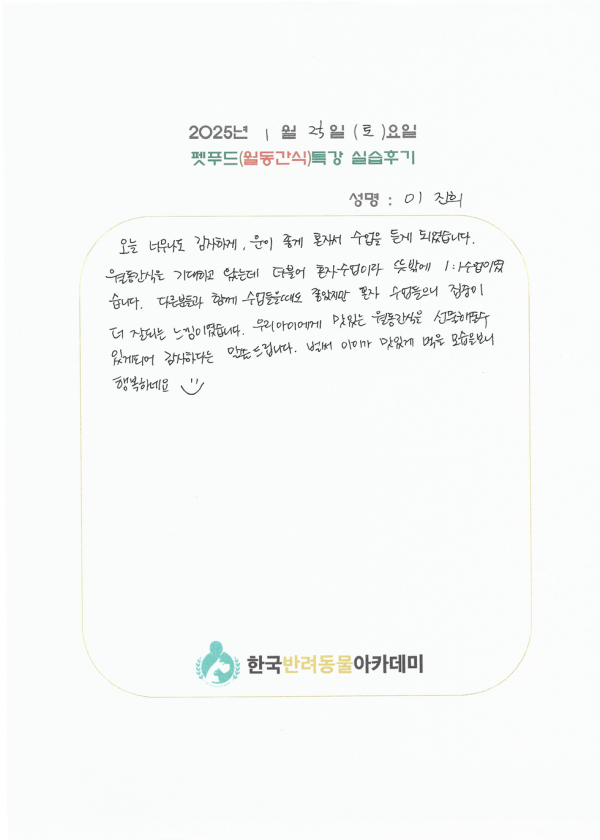 2025년 1월 25일 (토)요일
펫푸드(월동간식)특강 실습후기
성명 : 이 진희
오늘 너무나도 감사하게, 운이 좋게 혼자서 수업을 듣게 되었습니다.
월동간식은 기대하고 왔는데 더불어 혼자수업이라 뜻밖에 1:1수업이였
습니다. 다른분들과 함께 수업들을때도 좋았지만 혼자 수업들으니 집중이
더 잘되는 느낌이였습니다. 우리아이에게 맛있는 월동간식은 선물해줄수
있게되어 감사하다는 말씀드립니다. 벌써 아이가 맛있게 먹을 모습을보니
행복하네요
한국반려동물아카데미